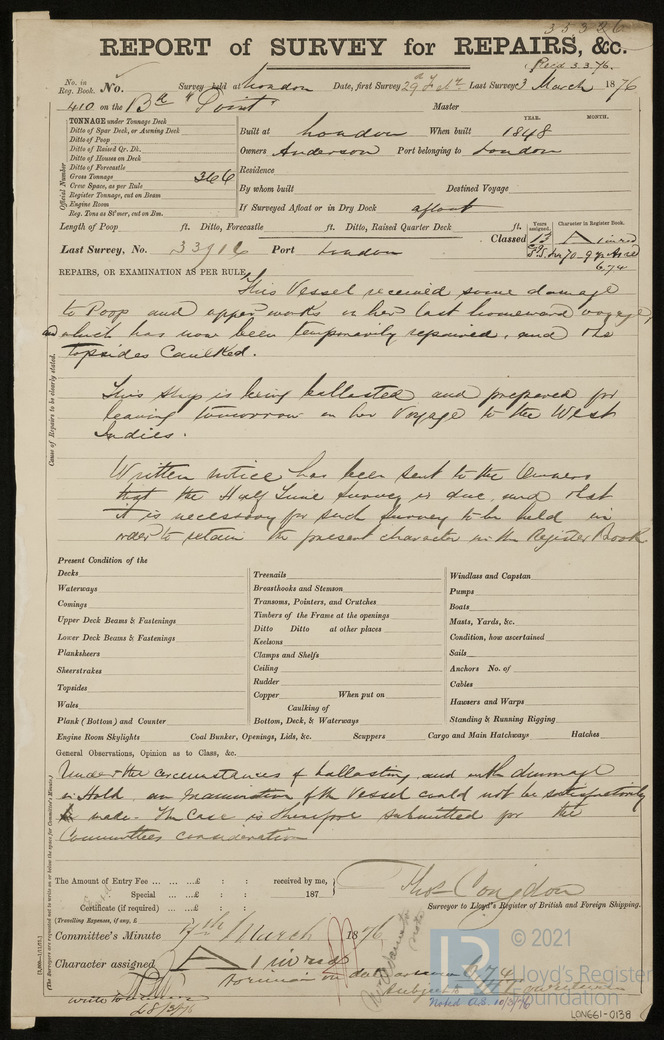 35326
REPORT of SURVEY for REPAIRS, &c.
Recd 3.3.76.
No. in Reg. Book. No. Survey held at London Date, first Survey 29th Feby Last Survey 3 March 1876
410 on the Bk "Point" Master
TONNAGE under Tonnage Deck
Ditto of Spar Deck, or Awning Deck
Ditto of Poop
Ditto of Raised Qr. Dk.
Ditto of Houses on Deck
Ditto of Forecastle
Gross Tonnage 366
Crew Space, as per Rule
Register Tonnage, cut on Beam
Engine Room
Reg. Tons as St'mer, cut on Bm.
Official Number
YEAR. MONTH.
Built at London When built 1848
Owners Anderson Port belonging to London
Residence
By whom built Destined Voyage
If Surveyed Afloat or in Dry Dock afloat
Length of Poop ft. Ditto, Forecastle ft. Ditto, Raised Quarter Deck ft.
Years assigned. Character in Register Book.
Classed 13 A in red
6.74
Last Survey, No. 33916 Port London
REPAIRS, OR EXAMINATION AS PER RULE,
This Vessel received some damage
to Poop and upper works on her last homeward voyage,
which has now been temporarily repaired, and the
topsides Caulked.
Cause of Repairs to be clearly stated.
This Ship is being ballasted and prepared for
leaving tomorrow on her Voyage to the West
Indies.
Written notice has been sent to the Owners
that the Half Time Survey is due, and that
it is necessary for such Survey to be held in
order to retain the present character in the Register Book
Present Condition of the
Decks
Waterways
Comings
Upper Deck Beams & Fastenings
Lower Deck Beams & Fastenings
Planksheers
Sheerstrakes
Topsides
Wales
Plank (Bottom) and Counter
Treenails
Breasthooks and Stemson
Transoms, Pointers, and Crutches
Timbers of the Frame at the openings
Ditto Ditto at other places
Keelsons
Clamps and Shelfs
Ceiling
Rudder
Copper When put on
Caulking of
Bottom, Deck, & Waterways
Windlass and Capstan
Pumps
Boats
Masts, Yards, &c.
Condition, how ascertained
Sails
Anchors No. of
Cables
Hawsers and Warps
Standing & Running Rigging
Engine Room Skylights Coal Bunker, Openings, Lids, &c. Scuppers Cargo and Main Hatchways Hatches
General Observations, Opinion as to Class, &c.
Under the circumstances of ballasting and with dunnage
in Hold an examination of the Vessel could not be satisfactorily
made. The Case is therefore submitted for the
Committees consideration
(The Surveyors are requested not to write on or below the space for Committee's Minute.)
The Amount of Entry Fee £ : : received by me,
Special £ : : 187
Certificate (if required) £ : :
(Travelling Expenses, if any, £ )
Thos Congdon
Surveyor to Lloyd's Register of British and Foreign Shipping.
Committee's Minute 7th March 1876
Character assigned A 1 in red
Noted A.B. 10/3/76
LR
© 2021
Lloyd's Register
Foundation
LON661-0138